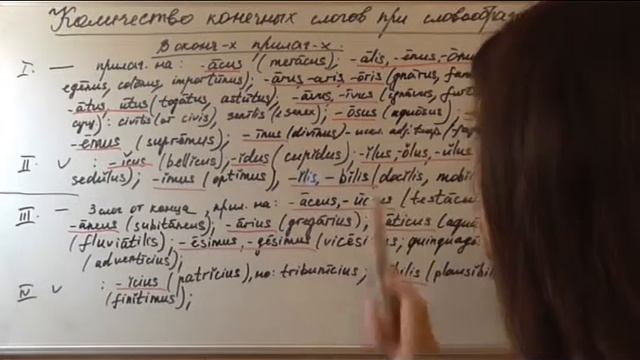 Количество конечных слогов при словообра
В оконч-х прилаг-х:
I. — прилаг. на: -ācus (merācus); -ālis, -ēnus, -ōnus
egēnus, colōnus, importūnus); -ārus -āris -ōris (gnārus,
-ātus, ūtus (togātus, astūtus); -āvus, -īvus (
: civīlis (от civis), senīlis (senex); -ōsus (aquōsus)
-ēmus (suprēmus); -īnus (dīvīnus) - искл.
II ᴗ : -icus (bellicus), -idus (cupidus); -ilus, -olus, -ulus
sedulus); -imus (optimus), -ilis, -bilis (docilis, mobil
III — 3 слог от конца, прил. на: -āceus, -ūc us (testāceu
-āneus (subitāneus); -ārius (gregārius); āticus (aqu
(fluviātilis); -ēsimus, -gēsimus (vicēsi us; quinquagē
(adventīcius);
IV ᴗ : -icius (patricius), но: tribunīcius; ibilis (plausibil
(finitimus);